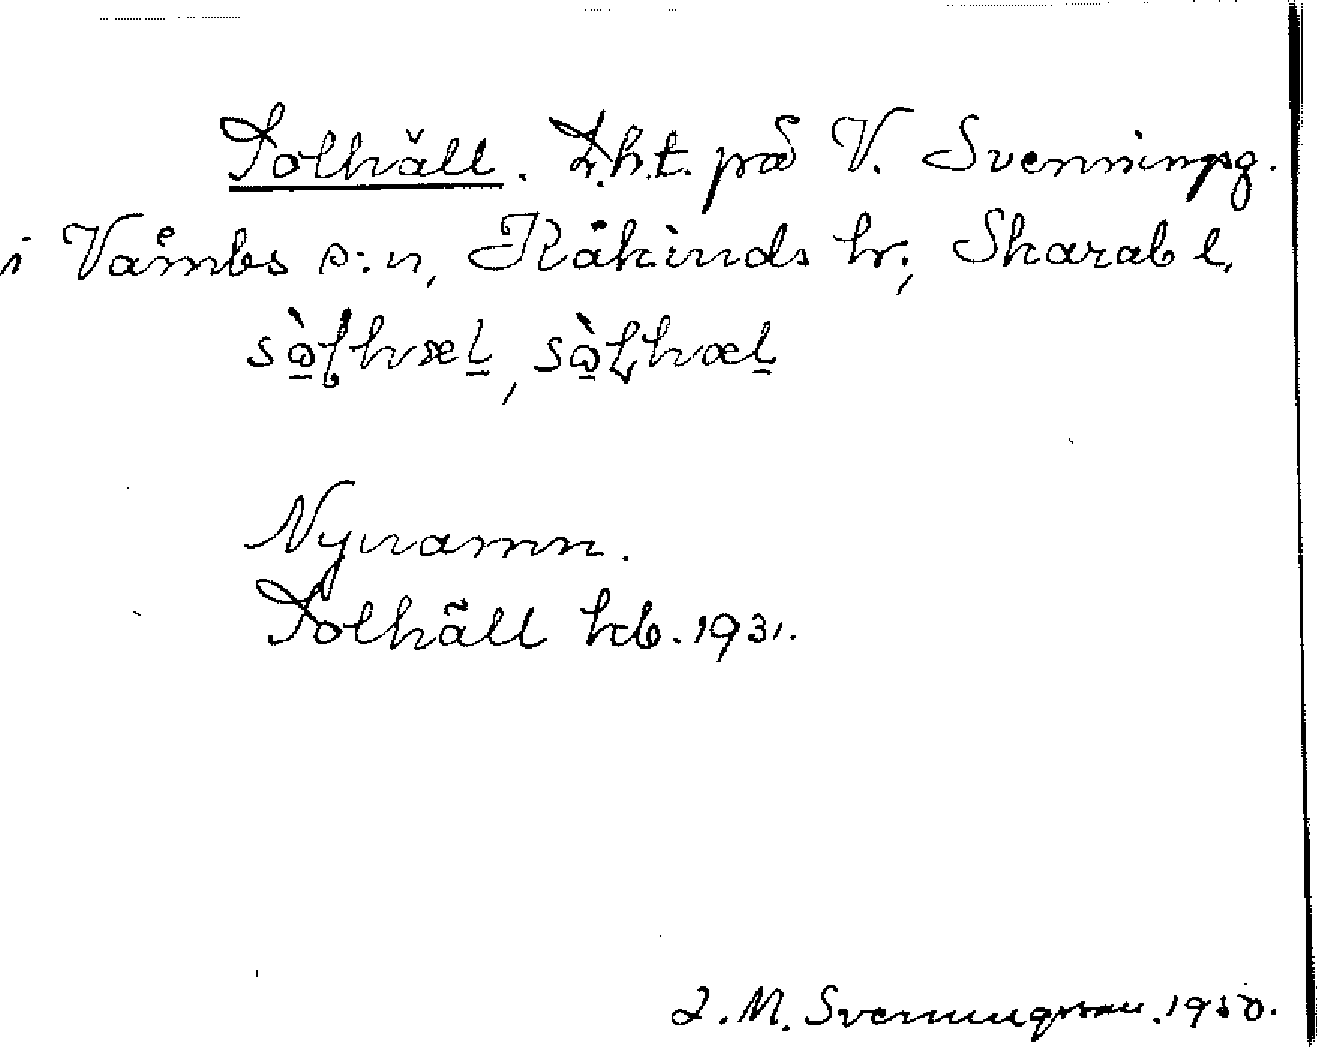 Solhäll. Lht. på V. Svenningsg.
i Våmbs s:n, Kåkinds hr, Skarab l.
Nynamn.
Solhäll hcb. 1931.
L. M. Svenungsson. 1950.